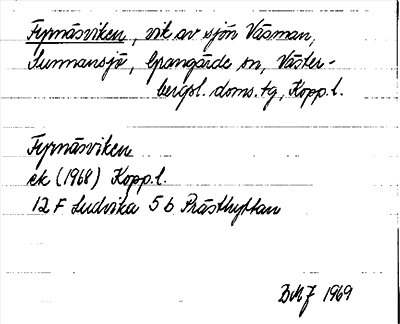 Fyrnäsviken, vik av sjön Väsman,
Sunnansjö, Grangärde sn, Väster-
bergsl. doms.tg, Kopp.l.
Fyrnäsviken
ek (1968) Kopp.l.
12 F Ludvika 5 b Prästhyttan
BMJ 1969